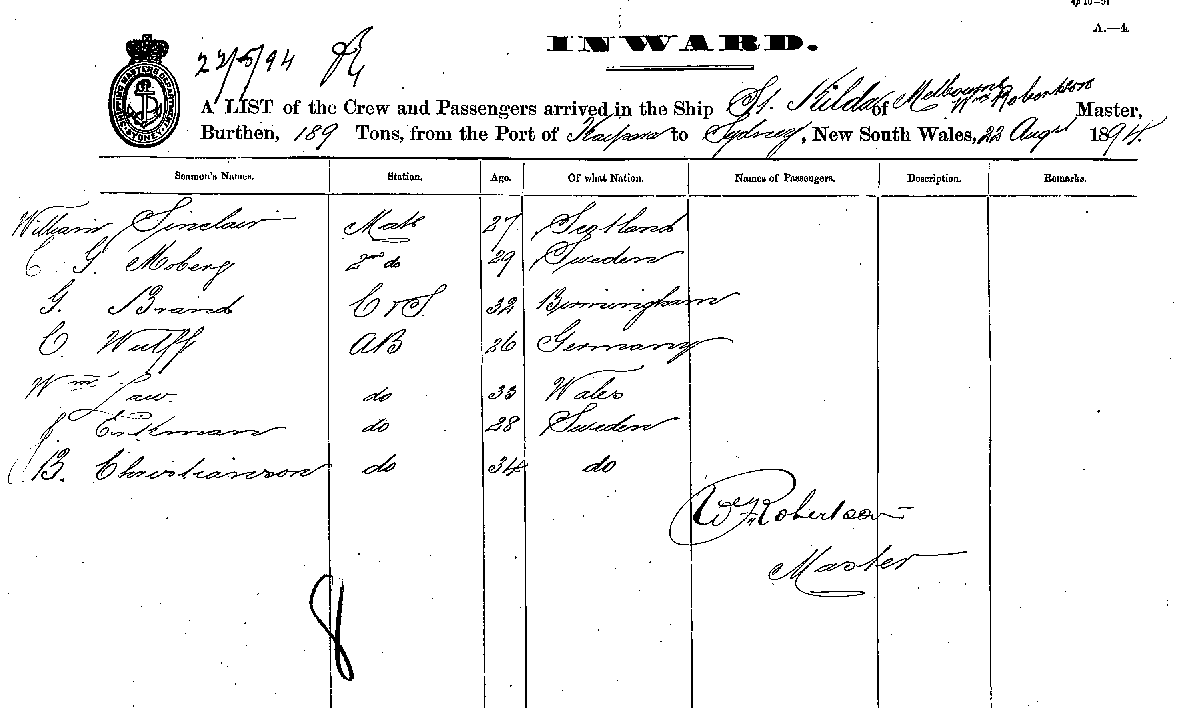 A.—4.
22/8/94
INWARD.
A LIST of the Crew and Passengers arrived in the Ship St. Kilda of Melbourne Wm Robertson Master,
Burthen, 189 Tons, from the Port of Kaipara to Sydney, New South Wales, 22 Augt 1894.
Seamen's Names. Station. Age. Of what Nation. Names of Passengers. Description. Remarks.
William Sinclair Mate 27 Scotland
C G. Moberg 2nd do 29 Sweden
G. Brand C & S. 32 Birmingham
C. Wulff AB 26 Germany
Wm Law. do 33 Wales
J. do 28 Sweden
B. Christianson do 34 do
W. Robertson
Master
8